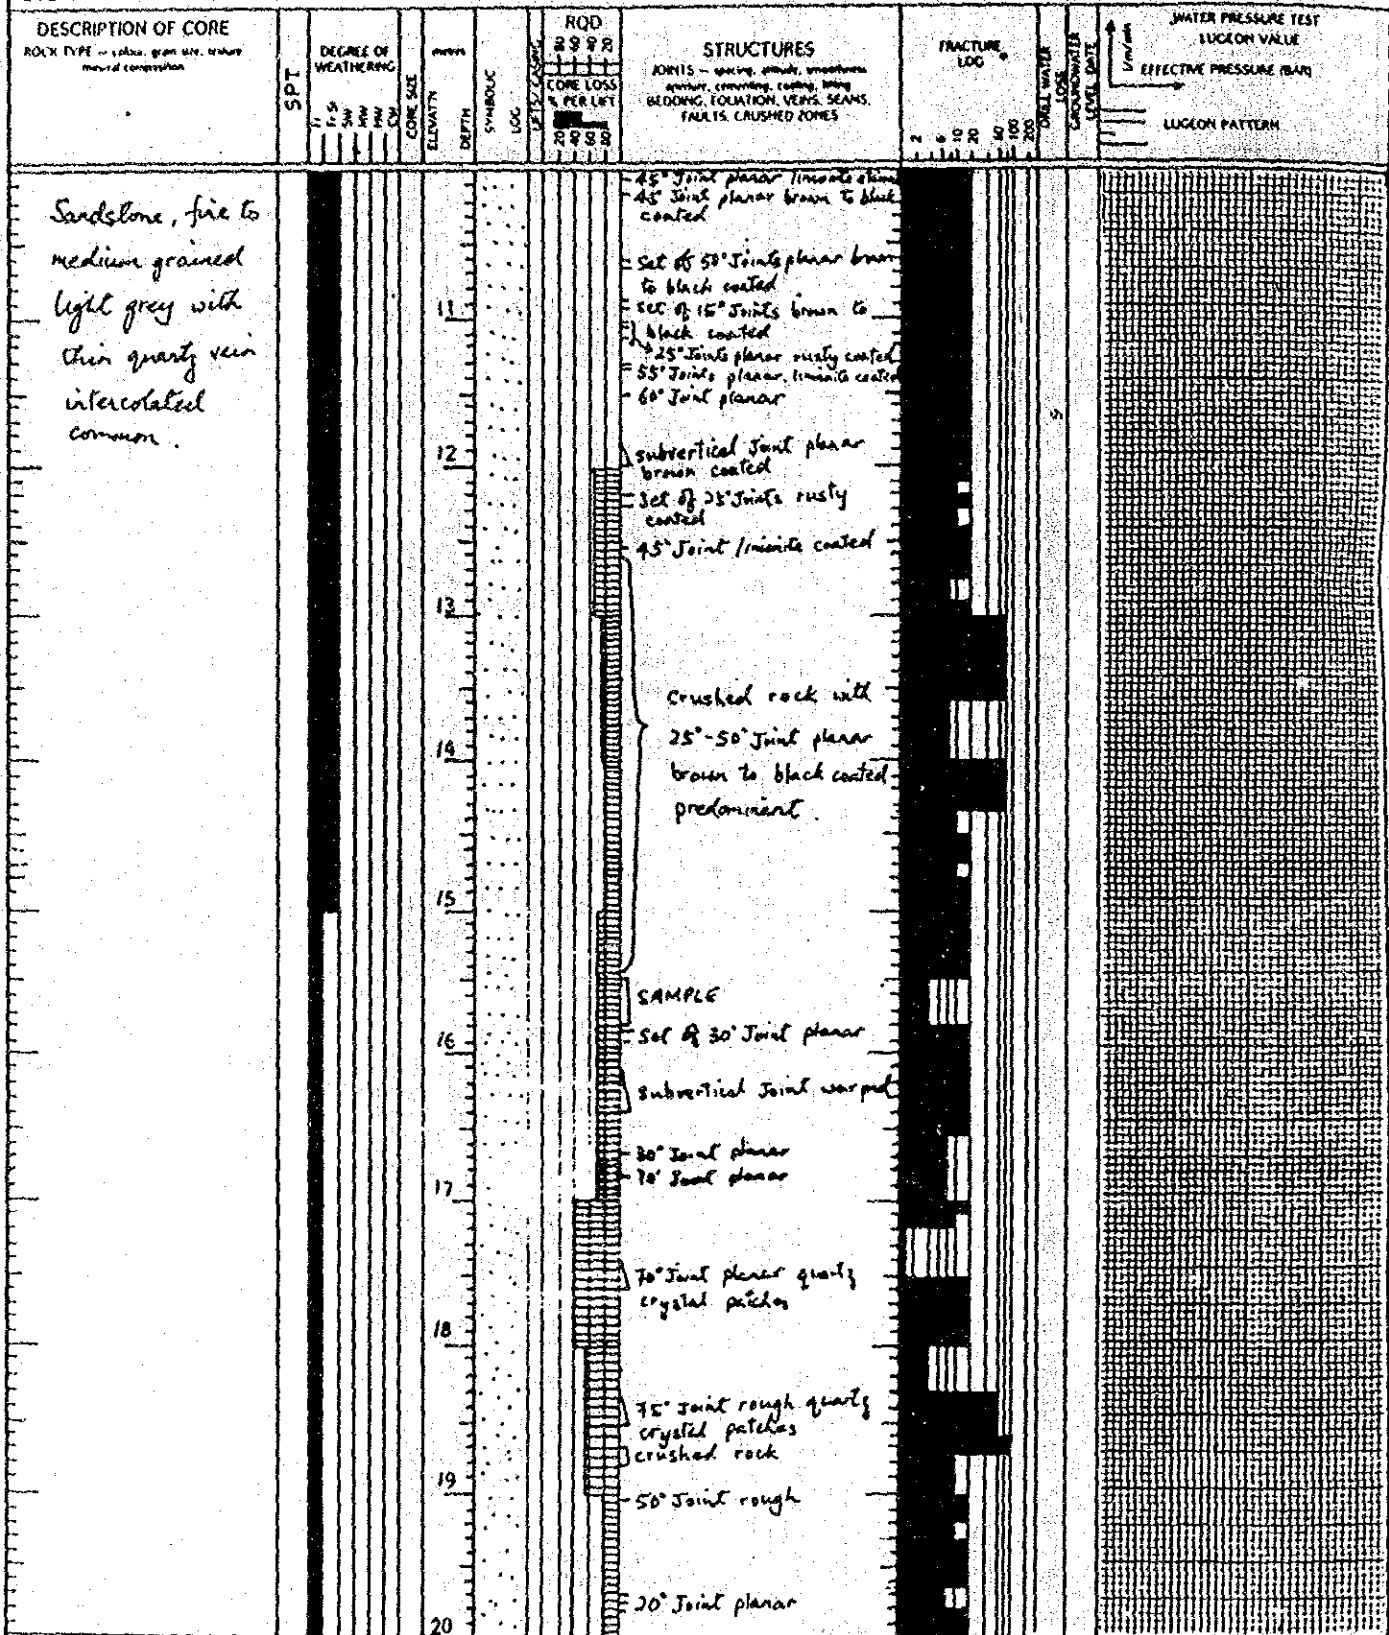 DESCRIPTION OF CORE
ROCK TYPE
SPT
DEGREE OF
WEATHERING
Fr
Fr-St
SW
MW
HW
CW
CORE SIZE
metres
ELEVATN
DEPTH
SYMBOLIC
LOG
LIFTS/CASING
RQD
80 60 40 20
CORE LOSS
% PER LIFT
20 40 60 80
STRUCTURES
JOINTS
BEDDING, FOLIATION, VEINS, SEAMS,
FAULTS, CRUSHED ZONES
FRACTURE
LOG
2 6 10 20 60 100 200
DRILL WATER
LOSS
GROUNDWATER
LEVEL DATE
WATER PRESSURE TEST
LUGEON VALUE
EFFECTIVE PRESSURE (BAR)
LUGEON PATTERN
Sandstone, fine to
medium grained
light grey with
thin quartz vein
intercolated
common.
45° Joint planar limonite
45° Joint planar brown to black
coated
Set of 50° Joints planar brown
to black coated
11
Set of 15° Joints brown to
black coated
25° Joints planar rusty coated
55° Joints planar, limonite coated
60° Joint planar
12
subvertical Joint planar
brown coated
Set of 25° Joints rusty
coated
45° Joint limonite coated
13
Crushed rock with
14
25°-50° Joint planar
brown to black coated
predominant.
15
SAMPLE
16
Set of 30° Joint planar
subvertical Joint warped
30° Joint planar
17
70° Joint planar
70° Joint planar quartz
crystal patches
18
75° Joint rough quartz
crystal patches
crushed rock
19
50° Joint rough
20° Joint planar
20